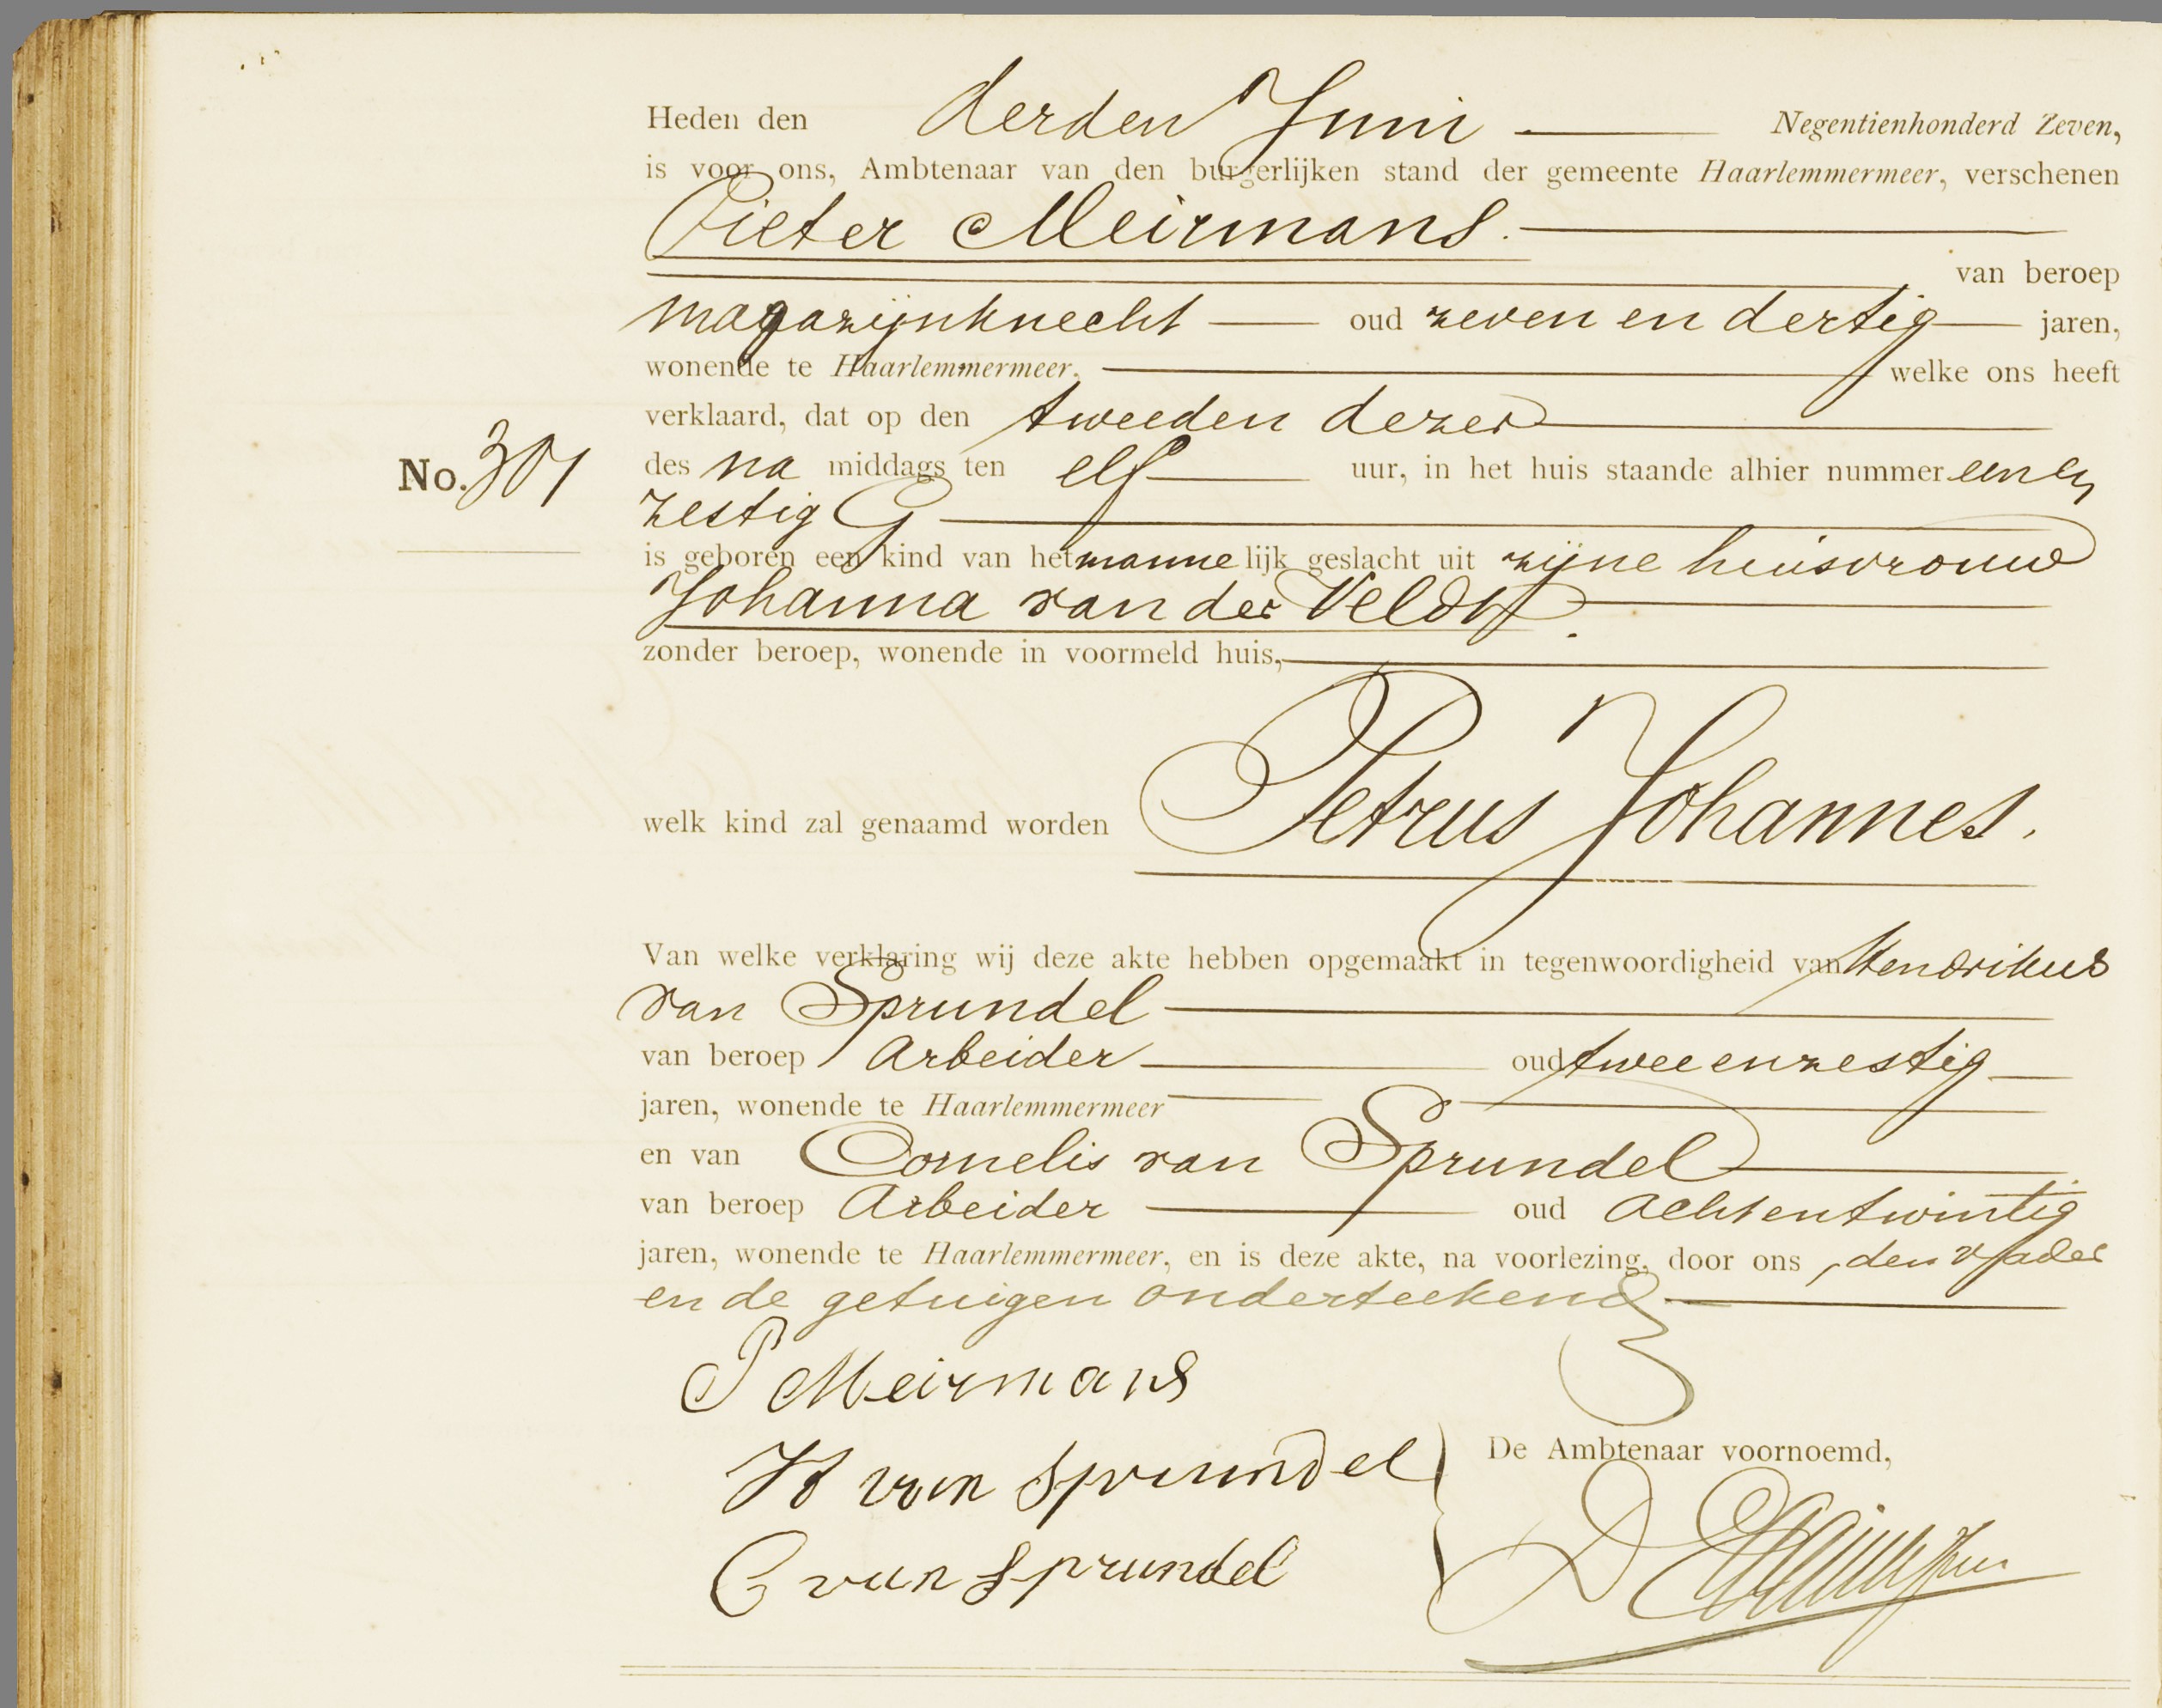 Heden den derden Juni Negentienhonderd Zeven,
is voor ons, Ambtenaar van den burgerlijken stand der gemeente Haarlemmermeer, verschenen
Pieter Meirmans.
van beroep
magazijnknecht oud zeven en dertig jaren,
wonende te Haarlemmermeer, welke ons heeft
verklaard, dat op den tweeden dezer
No. 301
des na middags ten elf uur, in het huis staande alhier nummer een en
zestig G
is geboren een kind van het mannelijk geslacht uit zijne huisvrouw
Johanna van der Veldt.
zonder beroep, wonende in voormeld huis,
welk kind zal genaamd worden Petrus Johannes.
Van welke verklaring wij deze akte hebben opgemaakt in tegenwoordigheid van Hendrikus
van Sprundel
van beroep Arbeider oud twee en zestig
jaren, wonende te Haarlemmermeer
en van Cornelis van Sprundel
van beroep Arbeider oud achtentwintig
jaren, wonende te Haarlemmermeer, en is deze akte, na voorlezing, door ons, den vader
en de getuigen onderteekend
P Meirmans
H van Sprundel
De Ambtenaar voornoemd,
C van Sprundel